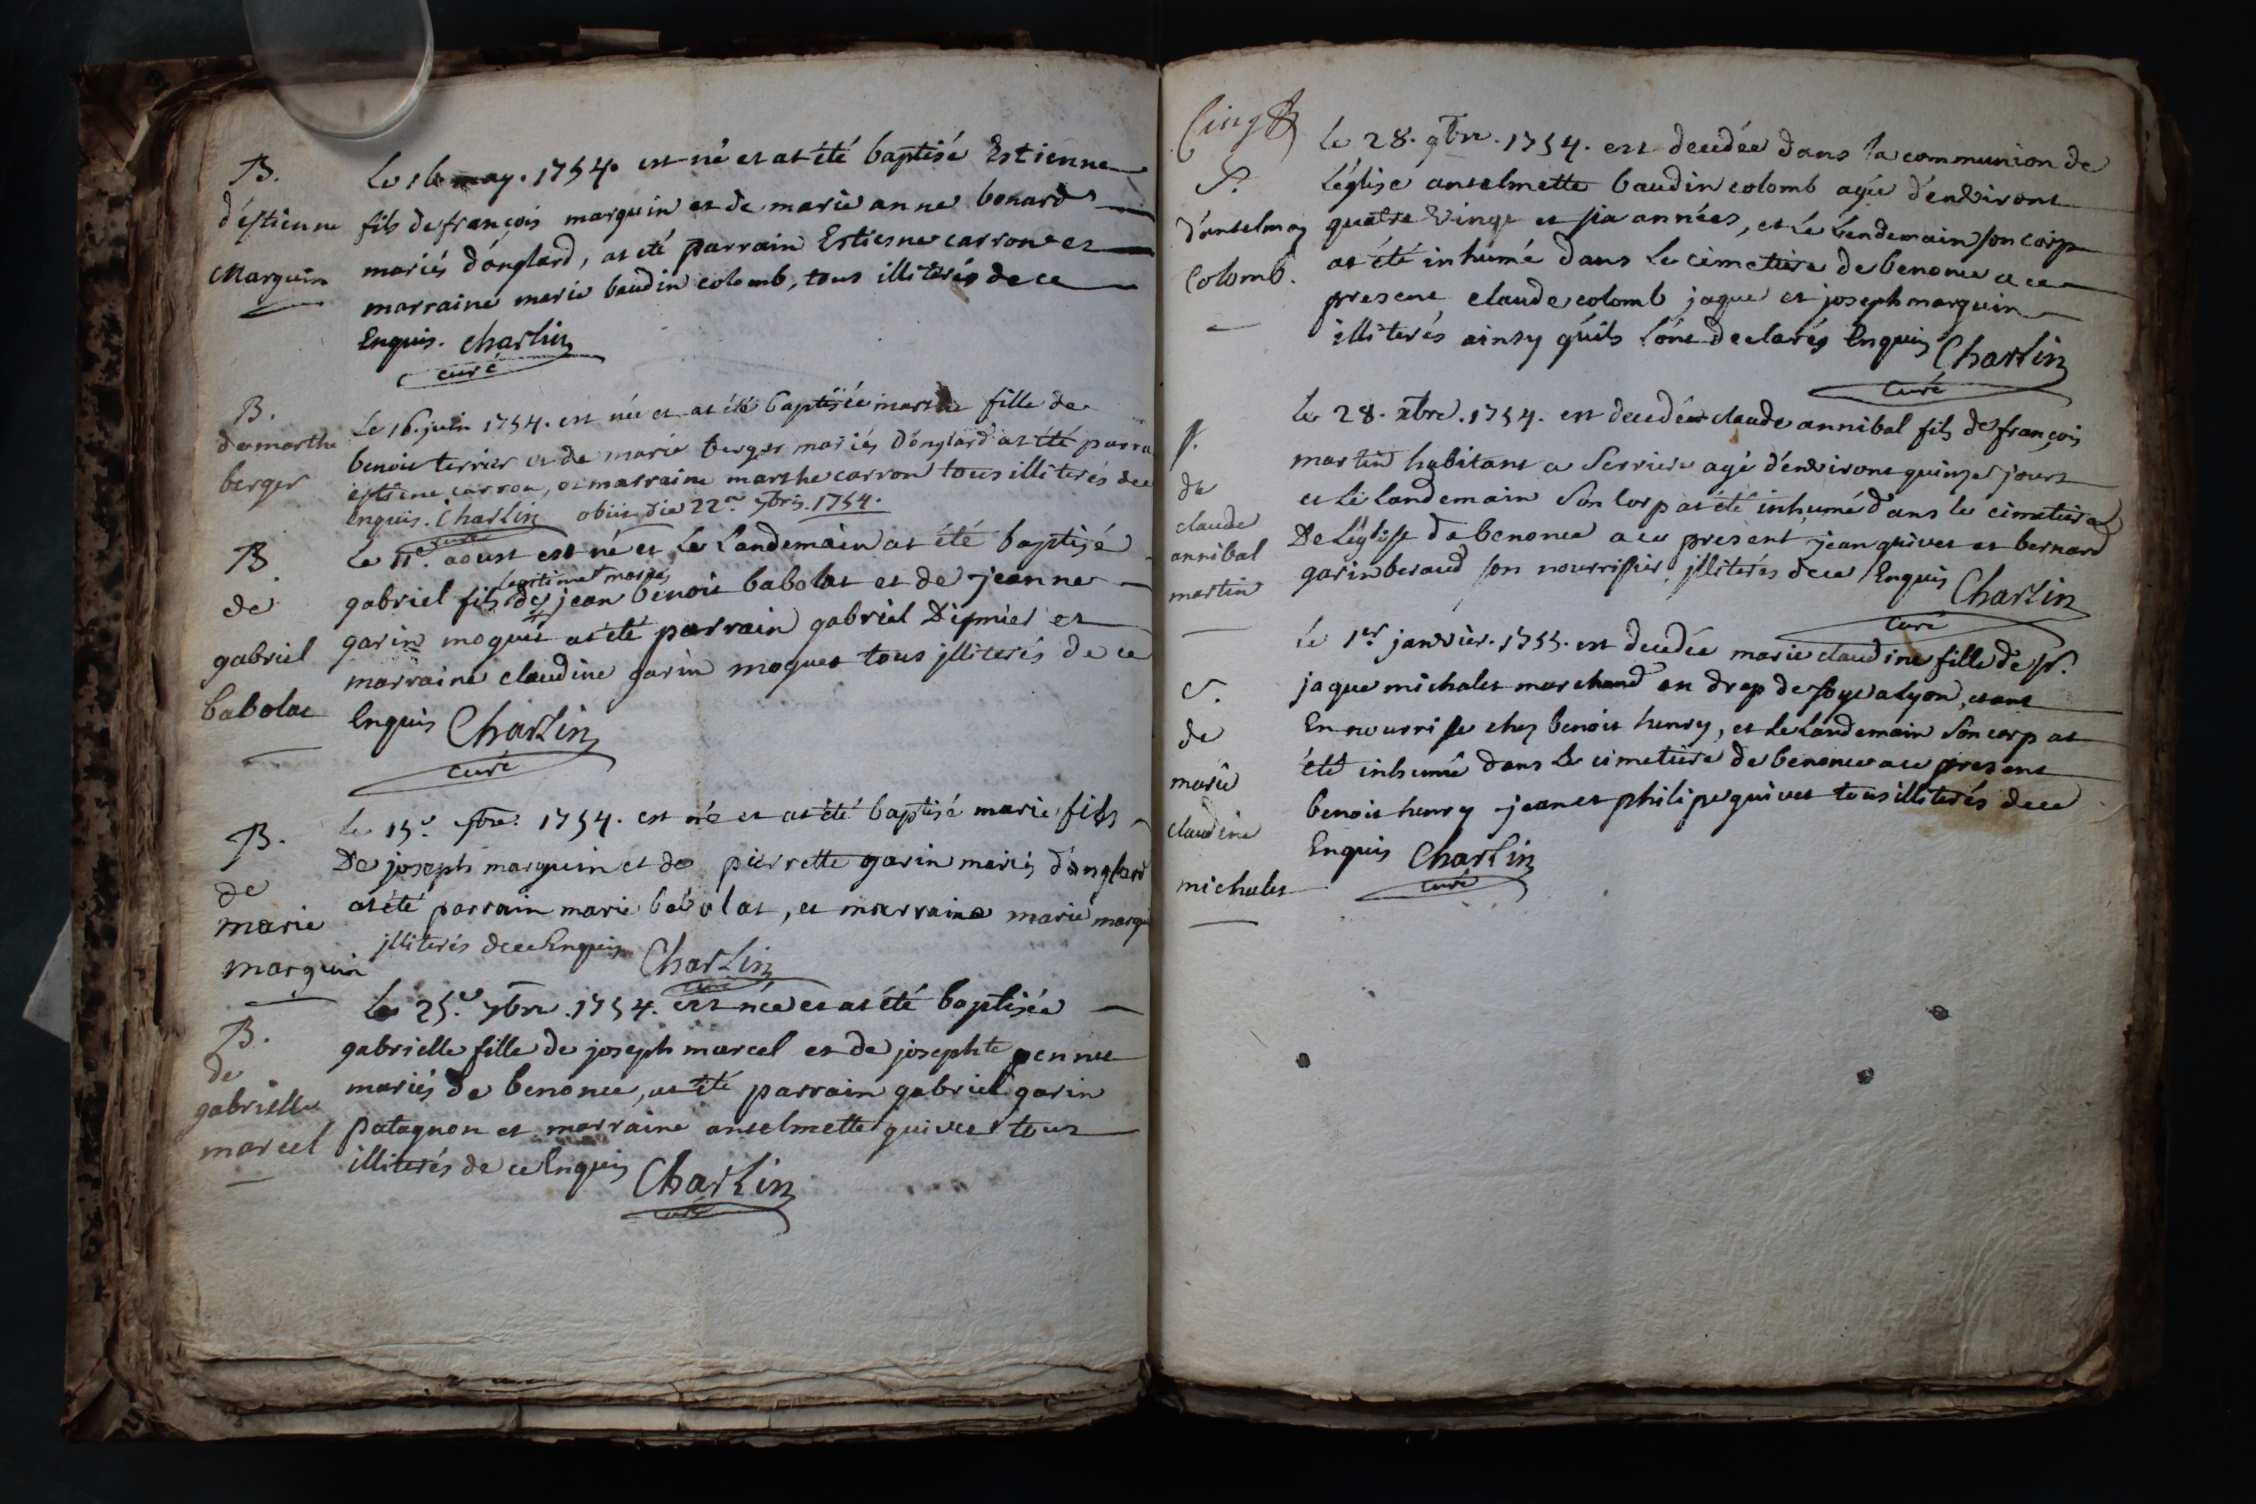 B.
d'estienne
Marquin
Le 16 may. 1754. est né et at été baptisé Estienne
fils de françois marquin et de marie anne bonard
mariés d'onglard, at été parrain Estienne carron et
marraine marie baudin colomb, tous illiterés de ce
Enquis. Charlin
curé
B.
de marthe
berger
Le 16. juin 1754. est née et at été baptisée marthe fille de
benoit terrier et de marie berger mariés d'onglard at été parra
estiene carron, et marraine marthe carron tous illiterés dece
enquis. Charlin obiit die 22a. 7bris. 1754.
curé
B
de
gabriel
babolat
Le 11e. aoust est né et Le Landemain at été baptisé
legitime mariés
gabriel fils de jean benoit babolat et de jeanne
garin moguet at été parrain gabriel Digmier et
marraine claudine garin moguet tous jlliterés de ce
Enquis Charlin
curé
B.
de
marie
marquin
Le 15e. 7bre. 1754. est né et at été baptisé marie fils
De joseph marquin et de pierrette garin mariés d'onglard
at été parrain marie babolat, et marraine marie marqu
jlliterés dece Enquis Charlin
curé
B.
de
gabrielle
marcel
Le 25.e 7bre. 1754. est née et at été baptisée
gabrielle fille de joseph marcel et de josephte pennet
mariés de benonce, at été parrain gabriel garin
patagnon et marraine anselmette quivet tous
illiterés de ce Enquis Charlin
curé
Cinq
S.
d'anselmey
Colomb.
le 28. 9bre. 1754. est decedée dans la communion de
L'église anselmette baudin colomb agée d'environt
quatre vingt et six années, et Le Lendemain son corp
at été inhumé dans Le cimetiere de benonce a ce
present claude colomb jaque et joseph marquin
illiterés ainsy qu'ils l'ont declarés Enquis Charlin
curé
S.
de
claude
annibal
martin
le 28. xbre. 1754. est decedé claude annibal fils de françois
martin habitant a Serriere agé d'environt quinze jours
et Le landemain Son Corp at été inhumé dans le cimetiere
De L'église de benonce a ce present jean quivet et bernard
garin beraud son nourrissier jlliterés dece Enquis Charlin
curé
S.
de
marie
claudine
michalet
le 1er janvier. 1755. est decedée marie claudine fille de sr.
jaque michalet marchand en drap de soye a Lyon, etant
En nourrisse chez benoit henry, et Le Landemain Son corp at
été inhumé dans Le cimetiere de benonce a ce present
benoit henry jean et philipe quivet tous illiterés dece
Enquis Charlin
curé